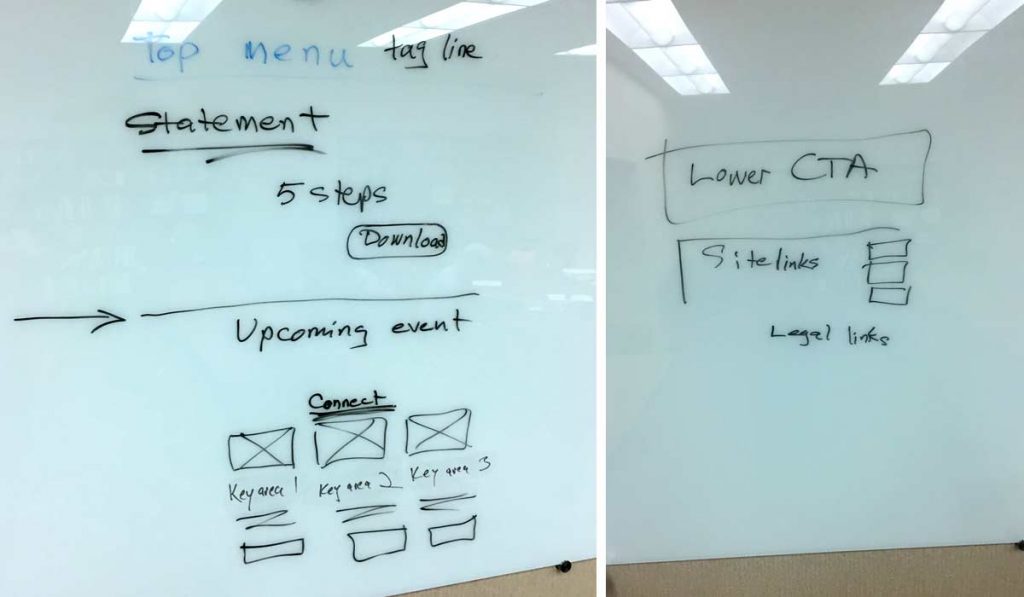 Top menu tag line
Statement
5 steps
Download
Upcoming event
Connect
Key area 1 Key area 2 Key area 3
Lower CTA
Sitelinks
Legal links